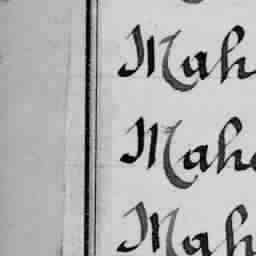 Mah
Maha
Mah